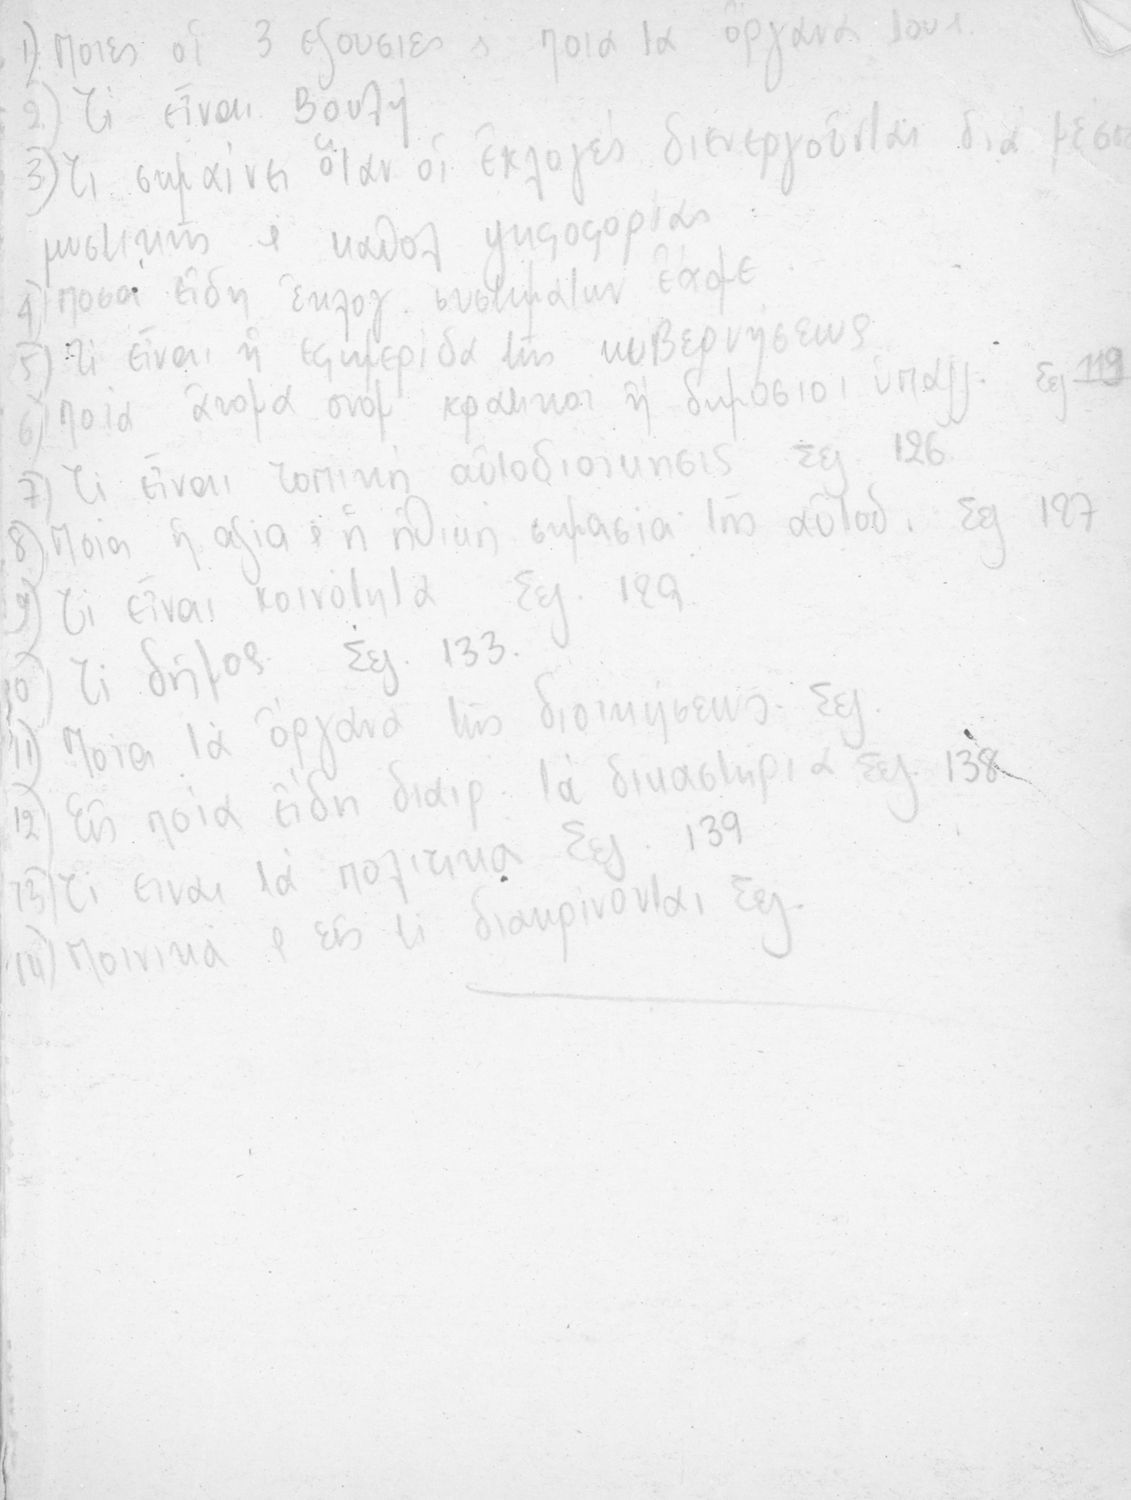 1) Ποιες οἱ 3 εξουσιες & ποια τα ὄργανα τους
2) Τί εἶναι Βουλή
3) Τι σημαίνει ὅταν οἱ ἐκλογές διενεργοῦνται διά μέσου
μυστικῆς & καθολ ψηφοφορίας
4) Ποσα εἴδη ἐκλογ. συστημάτων ἔχομε
5) Τί εἶναι ἡ εφημερίδα τῆς κυβερνήσεως
6) Ποῖα ἄτομα ονομ κρατικοι ἤ δημόσιοι ὑπαλλ. Σελ 119
7) Τί εἶναι τοπική αὐτοδιοίκησις Σελ 126
8) Ποία ἡ αξία & ἡ ἠθική σημασία τῆς αὐτοδ. Σελ 127
9) Τί εἶναι κοινότητα Σελ. 129
10) Τί δῆμος Σελ. 133.
11) Ποῖα τά ὄργανα τῆς διοικήσεως. Σελ.
12) Εἰς ποῖα εἴδη διαιρ. τά δικαστήρια Σελ. 138
13) Τί ειναι τά πολιτικα Σελ. 139
14) Ποινικά & εἰς τί διακρίνονται Σελ.